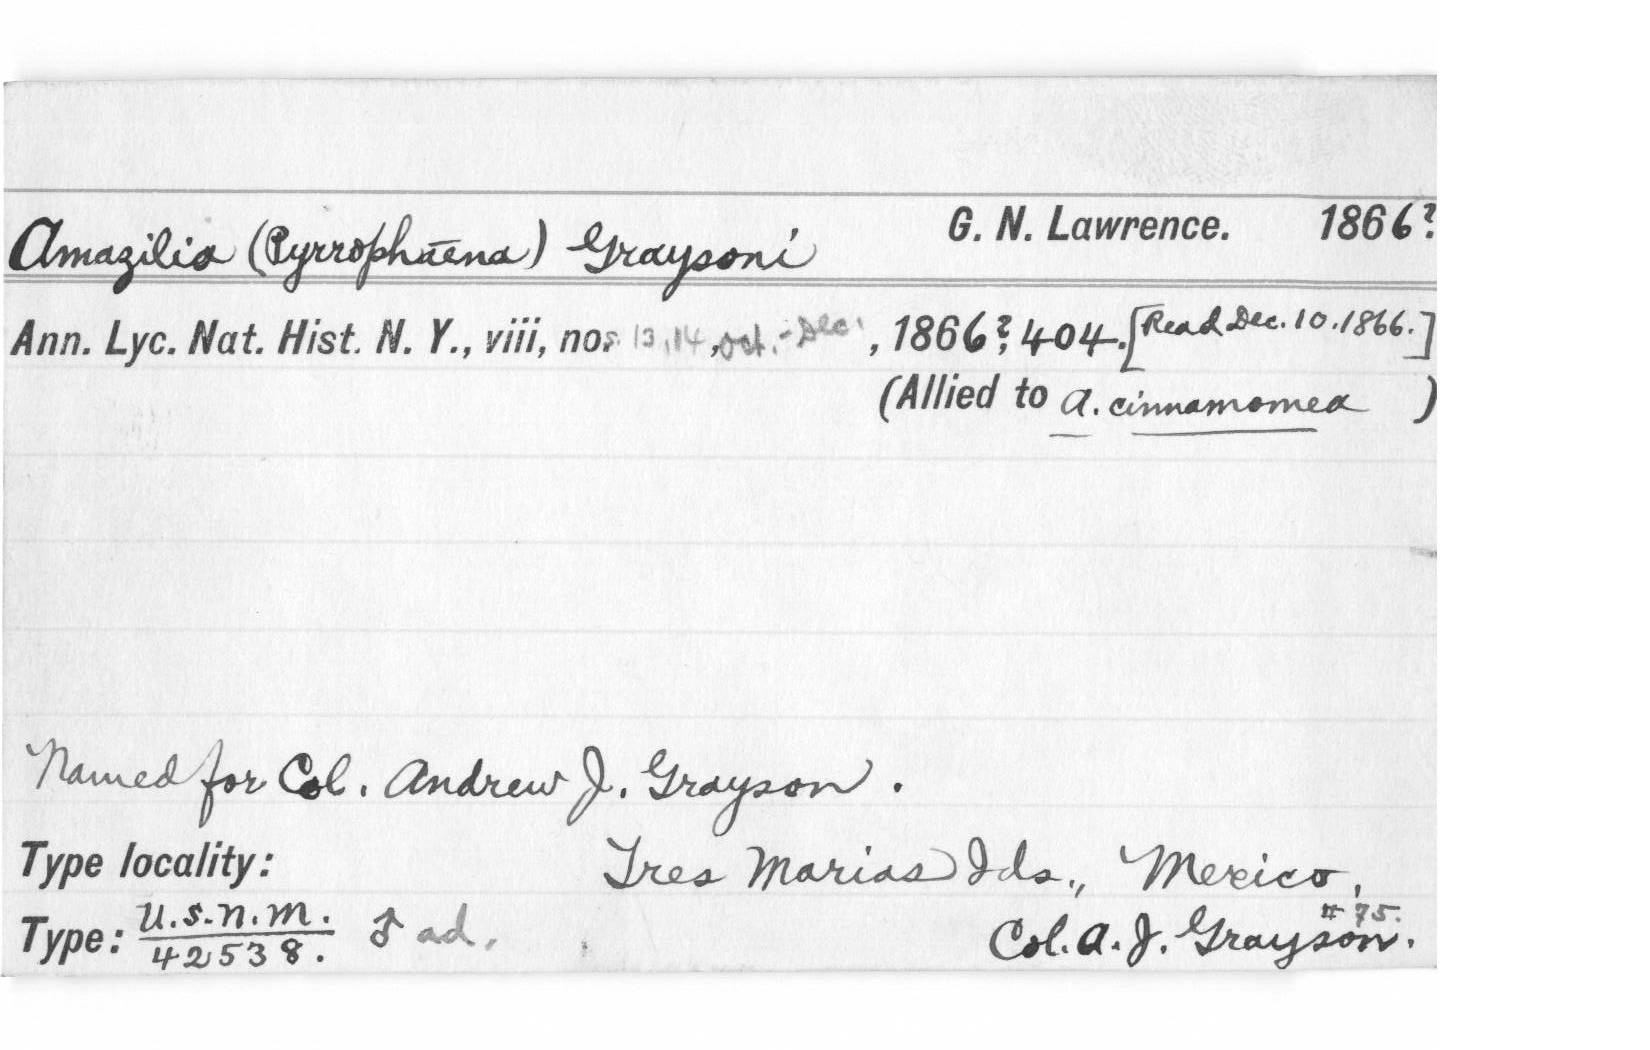 Amazilia (Pyrrophaena) Graysoni G. N. Lawrence. 1866?
Ann. Lyc. Nat. Hist. N. Y., viii, nos 13,14, Oct.-Dec., 1866?, 404. [Read Dec. 10. 1866.]
(Allied to A. cinnamomea )
Named for Col. Andrew J. Grayson.
Type locality: Tres Marias Ids., Mexico,
Type: U.S.N.M. ♂ ad. # 75.
42538. Col. A. J. Grayson.